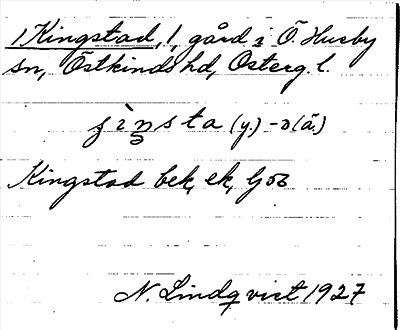 1 Kingstad, 1, gård i Ö. Husby
sn, Östkinds hd, Österg. l.
(y.) -ɔ (ä.)
Kingstad bek, ek,
N. Lindqvist 1927